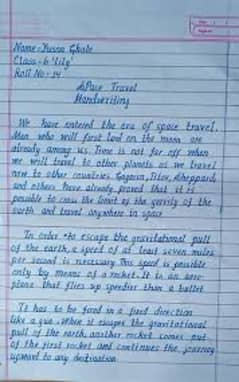 Name - Yusra Ghale
Class - 6 'Lily'
Roll No: 34
Space Travel
Handwriting
We have entered the era of space travel.
Men who will first land on the moon are
already among us. Time is not far off when
we will travel to other planets as we travel
now to other countries. Gagarin, Titov, Sheppard,
and others have already proved that it is
possible to cross the limit of the gravity of the
earth and travel anywhere in space
In order to escape the gravitational pull
of the earth, a speed of at least seven miles
per second is necessary. This speed is possible
only by means of a rocket. It is an aero-
plane that flies up speedier than a bullet
It has to be fired in a fixed direction
like a gun. When it escapes the gravitational
pull of the earth, another rocket comes out
of the first rocket and continues the journey
upward to any destination